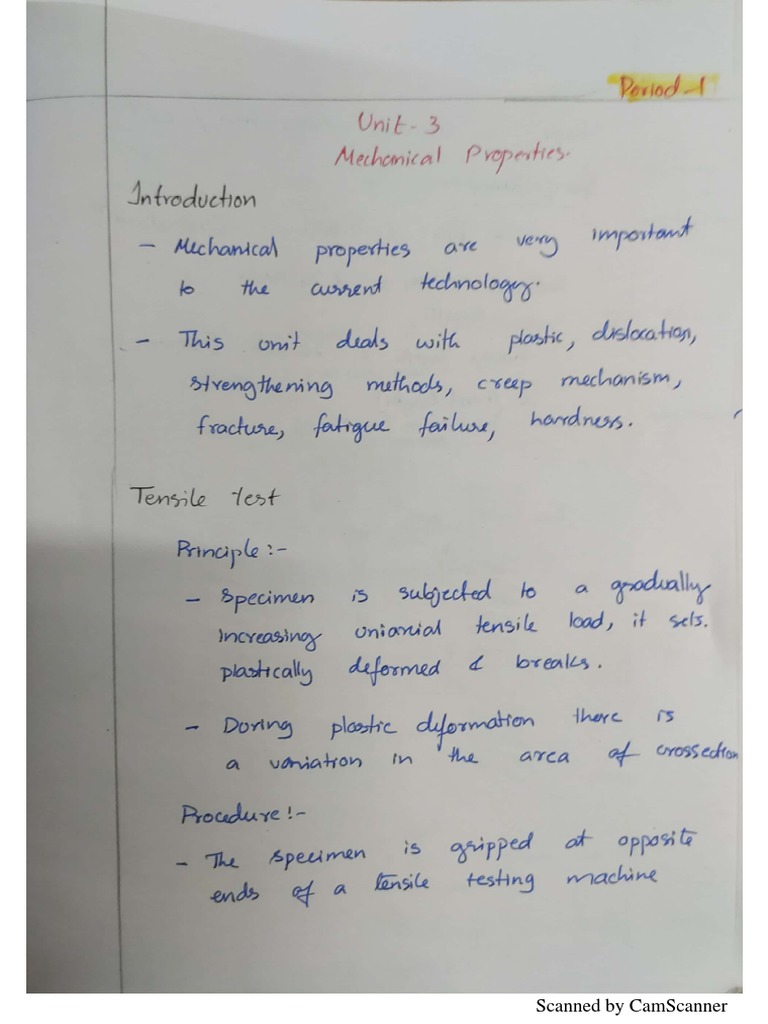 Period-1
Unit-3
Mechanical Properties.
Introduction
- Mechanical properties are very important
to the current technology.
- This unit deals with plastic, dislocation,
strengthening methods, creep mechanism,
fracture, fatigue failure, hardness.
Tensile test
Principle:-
- Specimen is subjected to a gradually
increasing uniaxial tensile load, it sets.
plastically deformed & breaks.
- During plastic deformation there is
a variation in the area of crossection
Procedure:-
- The specimen is gripped at opposite
ends of a tensile testing machine
Scanned by CamScanner